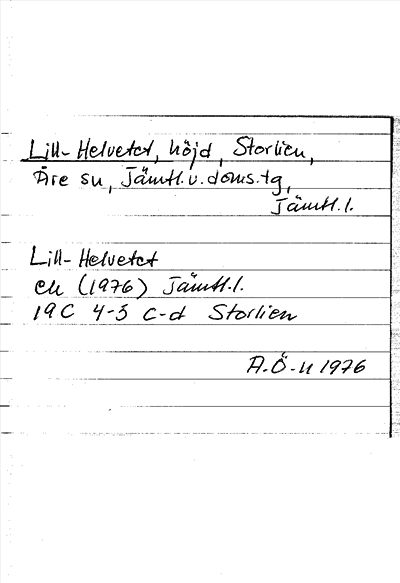 Lill-Helvetet, höjd, Storlien,
Åre sn, Jämtl. v. doms. tg,
Jämtl. l.
Lill-Helvetet
ek (1976) Jämtl. l.
19C 4-5 c-d Storlien
A.Ö-n 1976